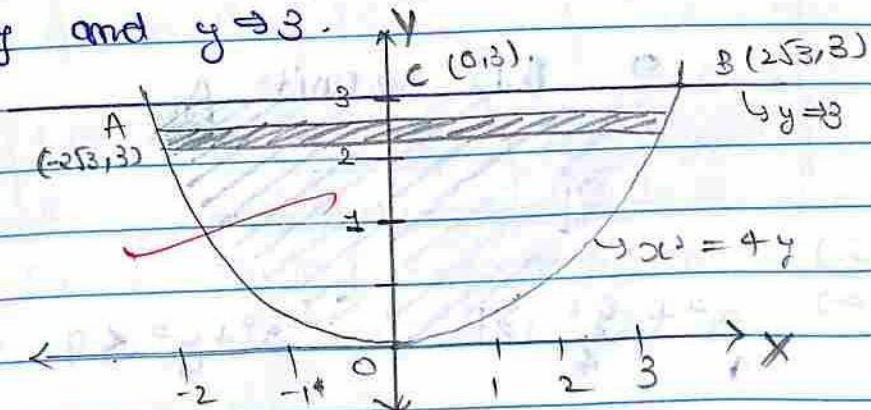 y and y ⇒ 3.
Y
C (0,3).
B (2√3, 3)
3
↳ y ⇒ 3
A
(-2√3, 3)
2
1
↳ x² = 4y
0
X
-2 -1 1 2 3